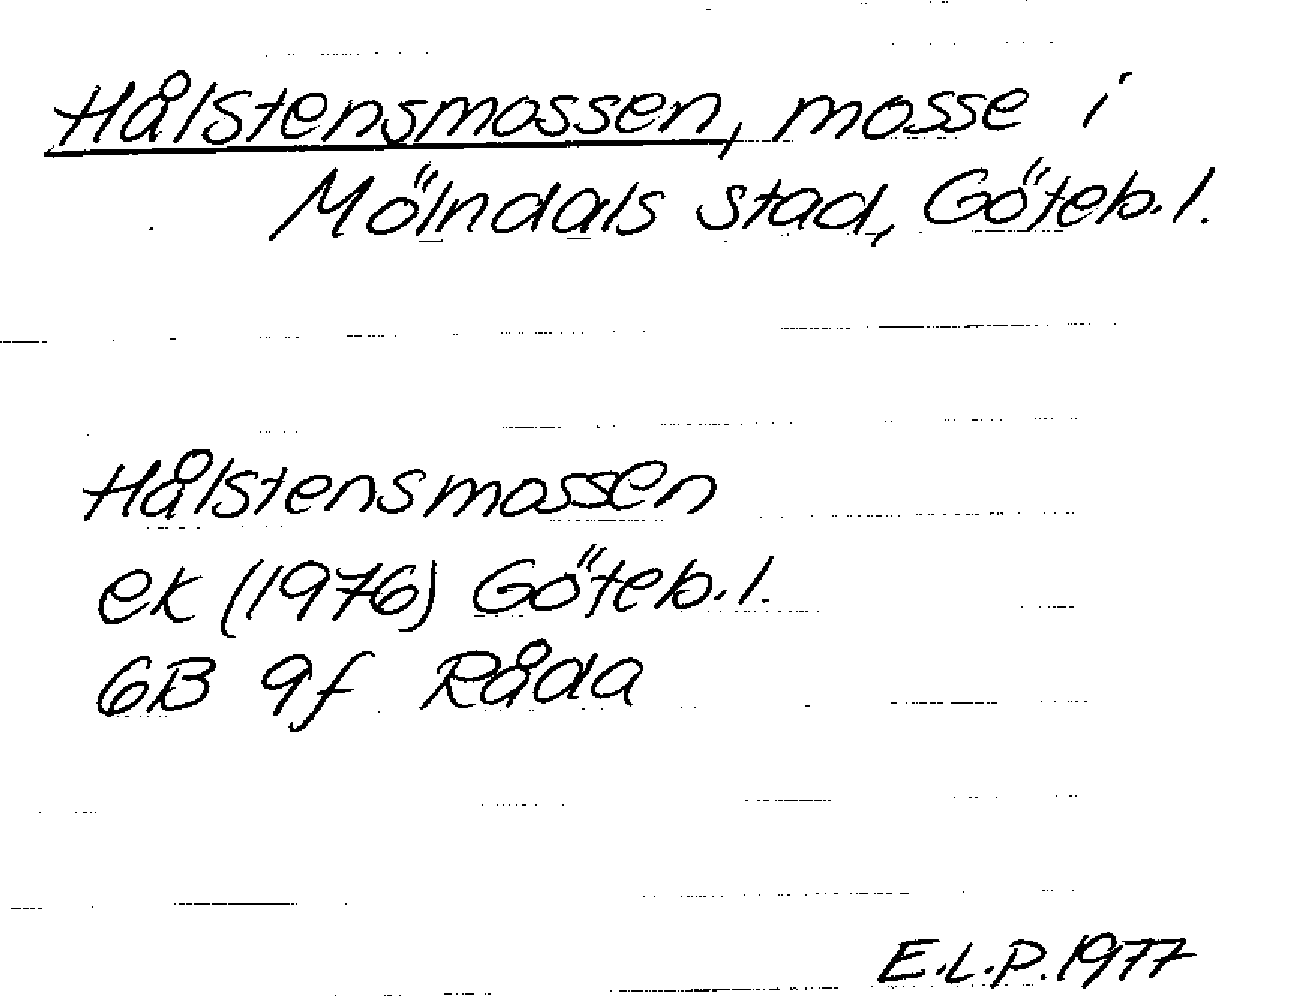 Hålstensmossen, mosse i
Mölndals stad, Göteb. l.
Hålstensmossen
ek (1976) Göteb. l.
6B 9f Råda
E.L.P. 1977